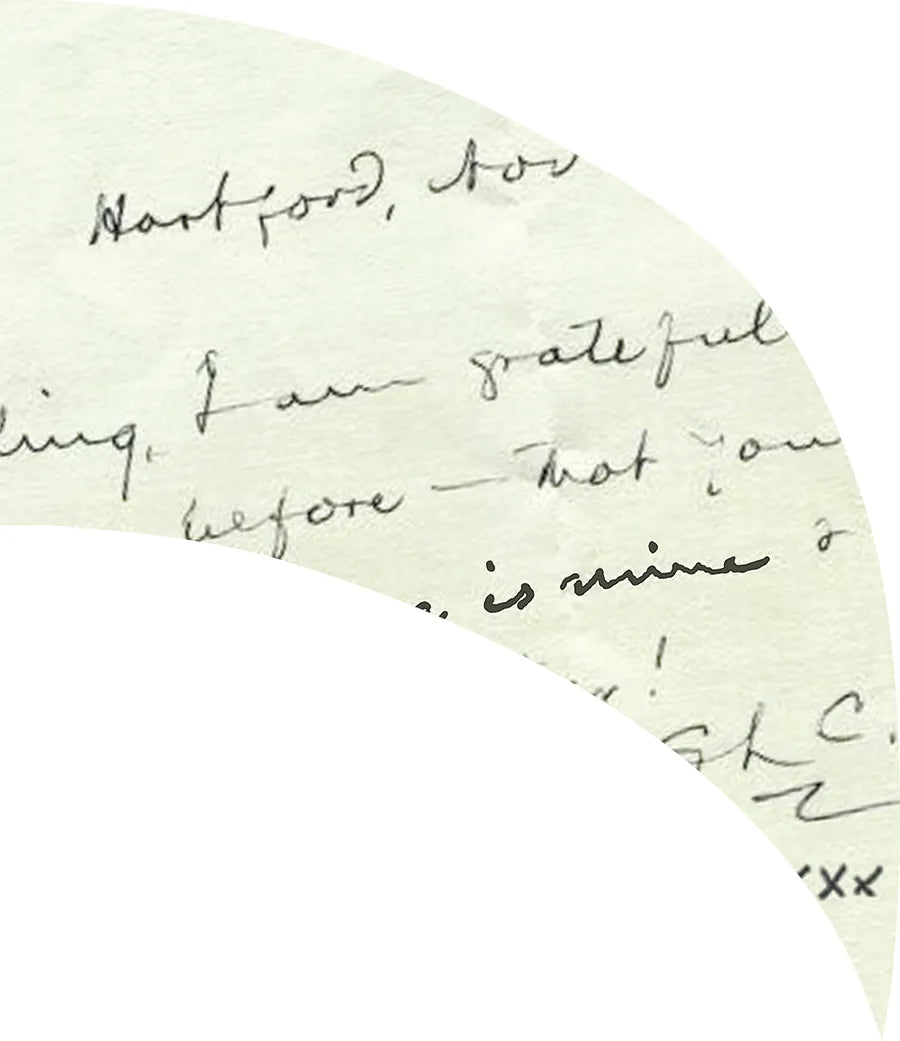 Hartford, Nov
ling, I am grateful
before — that you
is mine &
!
C.
xx